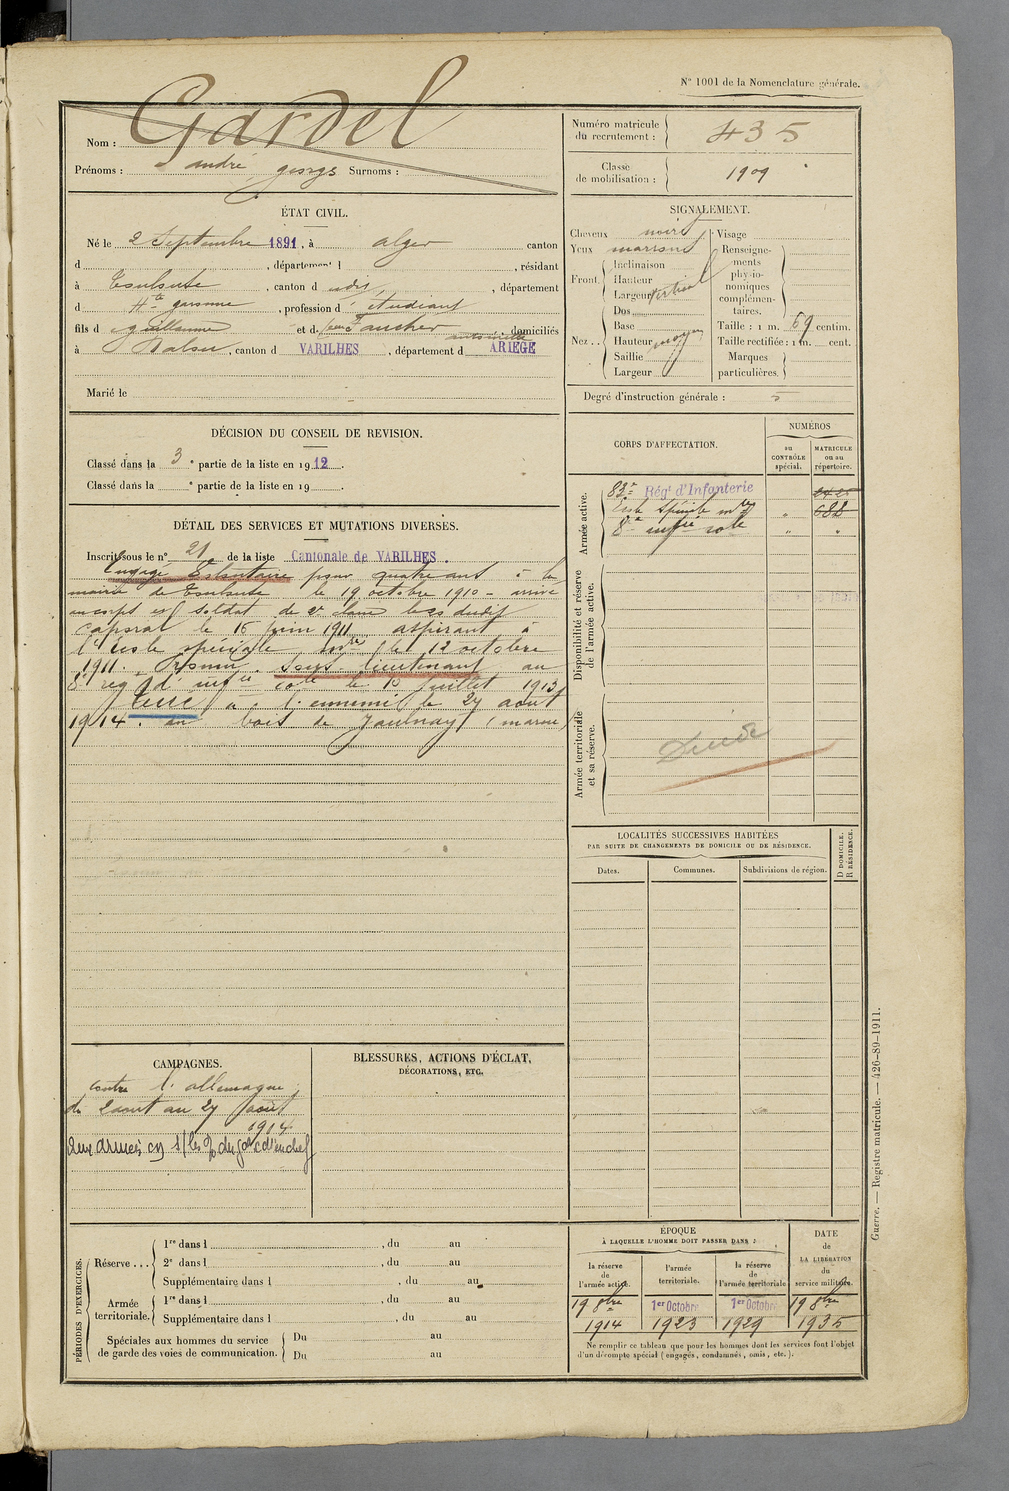 N° 1001 de la Nomenclature générale.
Nom : Gardel
Prénoms : andré georges Surnoms :
Numéro matricule du recrutement : 435
Classe de mobilisation : 1909
ÉTAT CIVIL.
Né le 2 Septembre 1891, à alger canton
d , département d , résidant
à Toulouse , canton d udit , département
d Hte garonne , profession d étudiant
fils d guillaume et d feu Faucher antoinette , domiciliés
à Dalou , canton d VARILHES , département d ARIEGE
Marié le
SIGNALEMENT.
Cheveux noirs
Yeux marrons
Front Inclinaison
Hauteur
Largeur vertical
Nez Dos
Base
Hauteur moyen
Saillie
Largeur
Visage
Renseignements physionomiques complémentaires.
Taille : 1 m. 69 centim.
Taille rectifiée : 1 m. cent.
Marques particulières.
Degré d'instruction générale : 5
DÉCISION DU CONSEIL DE REVISION.
Classé dans la 3e partie de la liste en 1912.
Classé dans la e partie de la liste en 19 .
DÉTAIL DES SERVICES ET MUTATIONS DIVERSES.
Inscrit sous le n° 21 de la liste Cantonale de VARILHES.
Engagé Volontaire pour quatre ans à la
mairie de Toulouse le 19 octobre 1910 - arrivé
au corps et soldat de 2e classe le dudit
caporal le 16 juin 1911 aspirant à
l'École spéciale mre le 12 octobre
1911. Promu Sous-lieutenant au
8e reg d'infie cole le 10 juillet 1913
Tué à l'ennemi le 27 août
1914 au bois de Jaulnay (marne)
CORPS D'AFFECTATION.
NUMÉROS
au CONTRÔLE spécial.
MATRICULE ou au répertoire.
Armée active.
83e Régt d'Infanterie
École Spéciale mre " 688
8e infie cole " "
Disponibilité et réserve de l'armée active.
Armée territoriale et sa réserve.
Décédé
LOCALITÉS SUCCESSIVES HABITÉES
PAR SUITE DE CHANGEMENTS DE DOMICILE OU DE RÉSIDENCE.
Dates.
Communes.
Subdivisions de région.
D DOMICILE. R RÉSIDENCE.
CAMPAGNES.
contre l'allemagne
du 2 aout au 27 août
1914
aux armées
BLESSURES, ACTIONS D'ÉCLAT,
DÉCORATIONS, ETC.
PÉRIODES D'EXERCICES.
Réserve . . . 1re dans l , du au
2e dans l , du au
Supplémentaire dans l , du au
Armée territoriale. 1re dans l , du au
Supplémentaire dans l , du au
Spéciales aux hommes du service de garde des voies de communication. Du au
Du au
ÉPOQUE
À LAQUELLE L'HOMME DOIT PASSER DANS :
la réserve de l'armée active.
l'armée territoriale.
la réserve de l'armée territoriale
DATE de LA LIBÉRATION du service militaire.
19 8bre 1914
1er Octobre 1923
1er Octobre 1929
19 8bre 1935
Ne remplir ce tableau que pour les hommes dont les services font l'objet
d'un décompte spécial (engagés, condamnés, omis, etc.).
Guerre. — Registre matricule. — 426-89-1911.